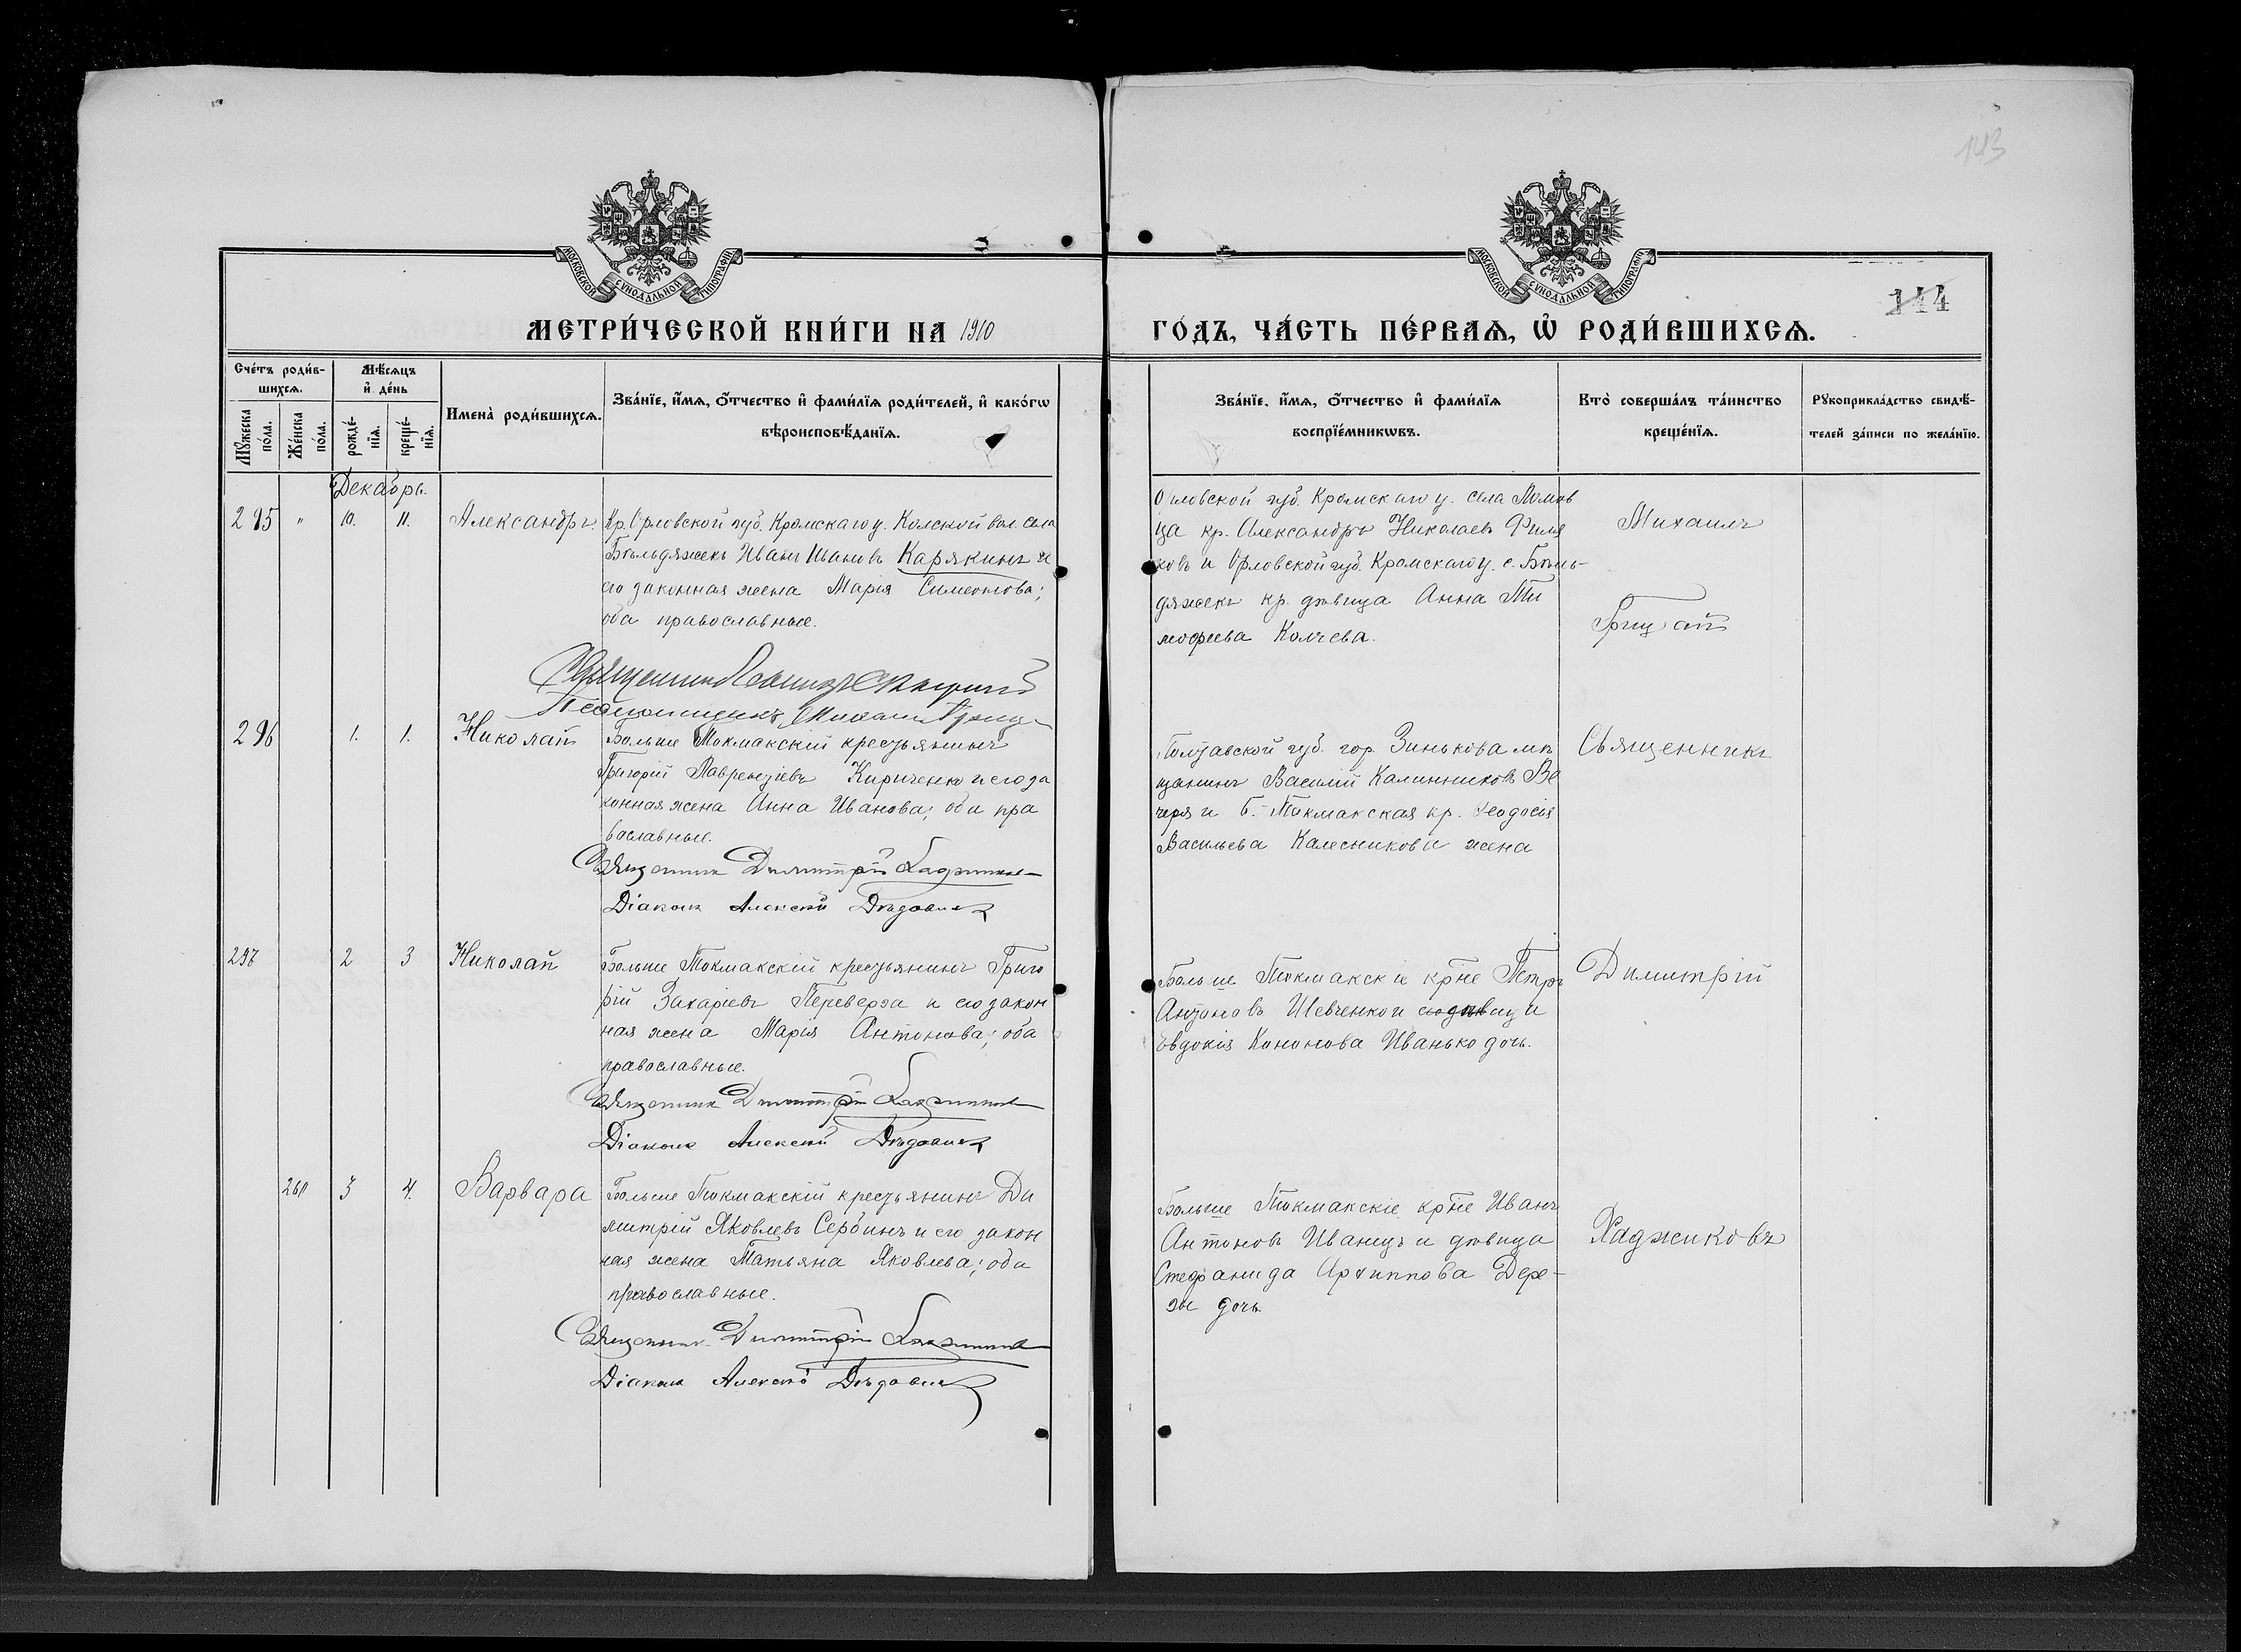 143
МОСКОВСКОЙ СѴНОДАЛЬНОЙ ТИПОГРАФІИ
МОСКОВСКОЙ СѴНОДАЛЬНОЙ ТИПОГРАФІИ
144
МЕТРИ́ЧЕСКОЙ КНИ́ГИ НА 1910
ГО́ДЪ, ЧА́СТЬ ПЕ́РВАѦ, Ѡ҆ РОДИ́ВШИХСѦ.
Сче́тъ роди́в-
шихсѧ.
Мѣ́сѧцъ
и҆ де́нь
Мꙋ́жеска
по́ла.
Же́нска
по́ла.
рожде́-
нїѧ.
креще́-
нїѧ.
Имена̀ роди́вшихсѧ.
Зва́нїе, и҆́мѧ, ѻ҆́тчество и҆ фами́лїѧ роди́телей, и҆ како́гѡ
вѣроисповѣ́данїѧ.
Зва́нїе, и҆́мѧ, ѻ҆́тчество и҆ фами́лїѧ
воспрїе́мникѡвъ.
Кто̀ соверша́лъ та́инство
креще́нїѧ.
Рꙋкоприкла́дство свидѣ́-
телей за́писи по жела́нїю.
Декабрь.
295 " 10. 11. Александръ.
Кр. Орловской губ. Кромскаго у. вол. села
Иванъ Ивановъ Карякинъ и
его законная жена Марія Симеонова;
оба православные.
Орловской губ. Кромскаго у. села
ца кр. Александръ Николаевъ Филя
ковъ и Орловской губ. Кромскаго у. с.
дяжекъ кр. дѣвица Анна Ти
моѳеева Колчева.
Михаилъ
Грицай
Священникъ
Псаломщикъ Михаилъ Гриц
296 1. 1. Николай
Больше Токмакскій крестьянинъ
Григорій Лаврентіевъ Кириченко и его за
конная жена Анна Иванова; оба пра
вославные.
Священникъ Димитрій Хаджиковъ
Діаконъ Алексій
Полтавской губ. гор. Зинькова мѣ
щанинъ Василій Калинниковъ Ве
черя и Б.-Токмакская кр. Ѳеодосія
Васильева Калесникова жена
Священникъ
297 2 3 Николай
Больше Токмакскій крестьянинъ Григо
рій Захаріевъ Переверза и его закон
ная жена Марія Антонова; оба
православные.
Священникъ Димитрій Хаджиковъ
Діаконъ Алексій
Больше Токмакскіе кр̃не Петръ
Антоновъ Шевченко и дѣвица
Евдокія Кононова Иванько дочь.
Димитрій
3 4. Варвара
Больше Токмакскій крестьянинъ Ди
митрій Яковлевъ Сербинъ и его закон
ная жена Татьяна Яковлева; оба
православные.
Священникъ Димитрій Хаджиковъ
Діаконъ Алексій
Больше Токмакскіе кр̃не Иванъ
Антоновъ Иваницъ и дѣвица
Стефанида Архиппова Дере-
зы дочь
Хаджиковъ